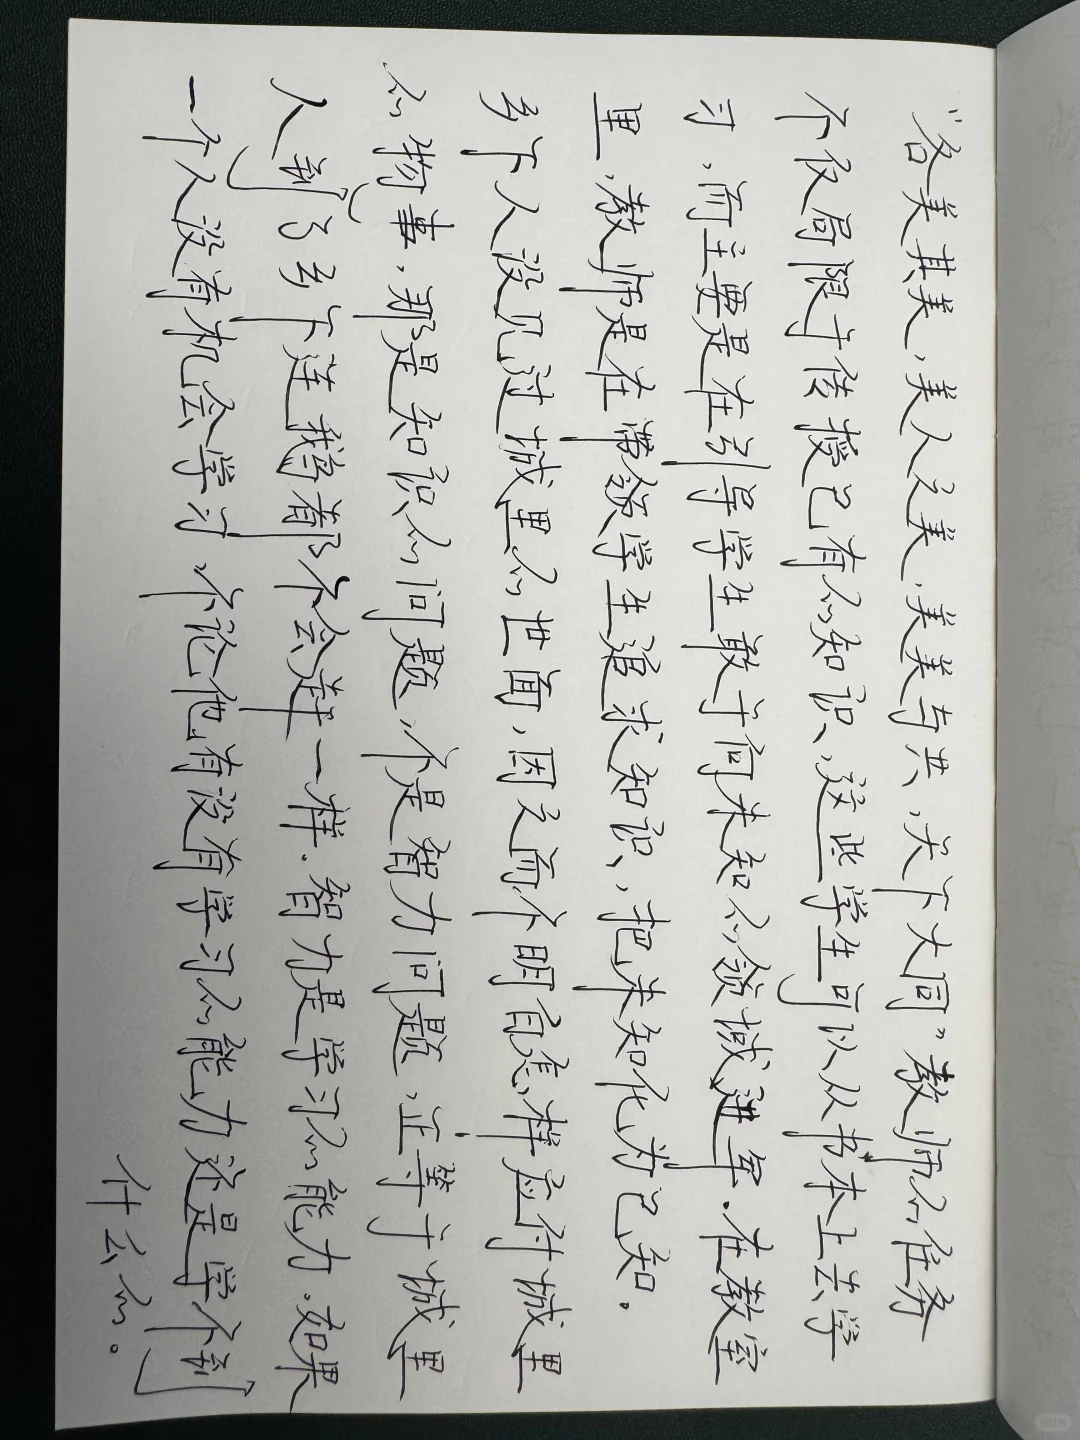 “各美其美,美人之美,美美与共,天下大同”教师的任务
不仅局限于传授已有的知识,这些学生可以从书本上去学
习,而主要是在引导学生敢于向未知的领域进军.在教室
里,教师是在带领学生追求知识,把未知化为已知.
乡下人没见过城里的世面,因之而不明白怎样应付城里
的物事,那是知识的问题,不是智力问题,正等于城里
人到了乡下连鹅都不会赶一样.智力是学习的能力.如果
一个人没有机会学习,不论他有没有学习的能力还是学不到
什么的。